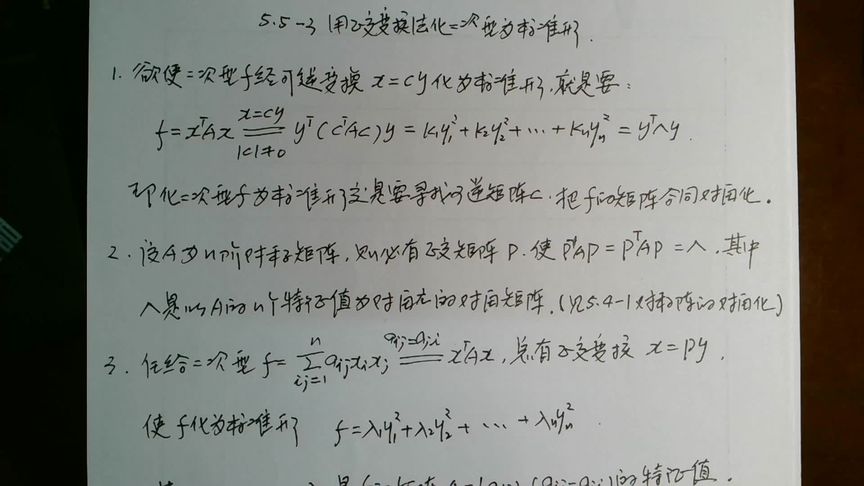 5.5-3 用正交变换法化二次型为标准形.
1. 欲使二次型f经可逆变换 x=Cy化为标准形,就是要:
f=xᵀAx ══(x=Cy, |C|≠0)══ yᵀ(CᵀAC)y = k₁y₁²+k₂y₂²+⋯+kₙyₙ² = yᵀΛy.
即化二次型f为标准形就是要寻找可逆矩阵C.把f的矩阵合同对角化.
2. 设A为n阶对称矩阵,则必有正交矩阵P.使P⁻¹AP=PᵀAP=Λ.其中
Λ是以A的n个特征值为对角元的对角矩阵.(见5.4-1对称阵的对角化)
3. 任给二次型 f= ∑ᵢⱼ₌₁ⁿ aᵢⱼxᵢxⱼ ══(aᵢⱼ=aⱼᵢ)══ xᵀAx,总有正交变换 x=Py,
使f化为标准形 f=λ₁y₁²+λ₂y₂²+⋯+λₙyₙ²
的特征值.